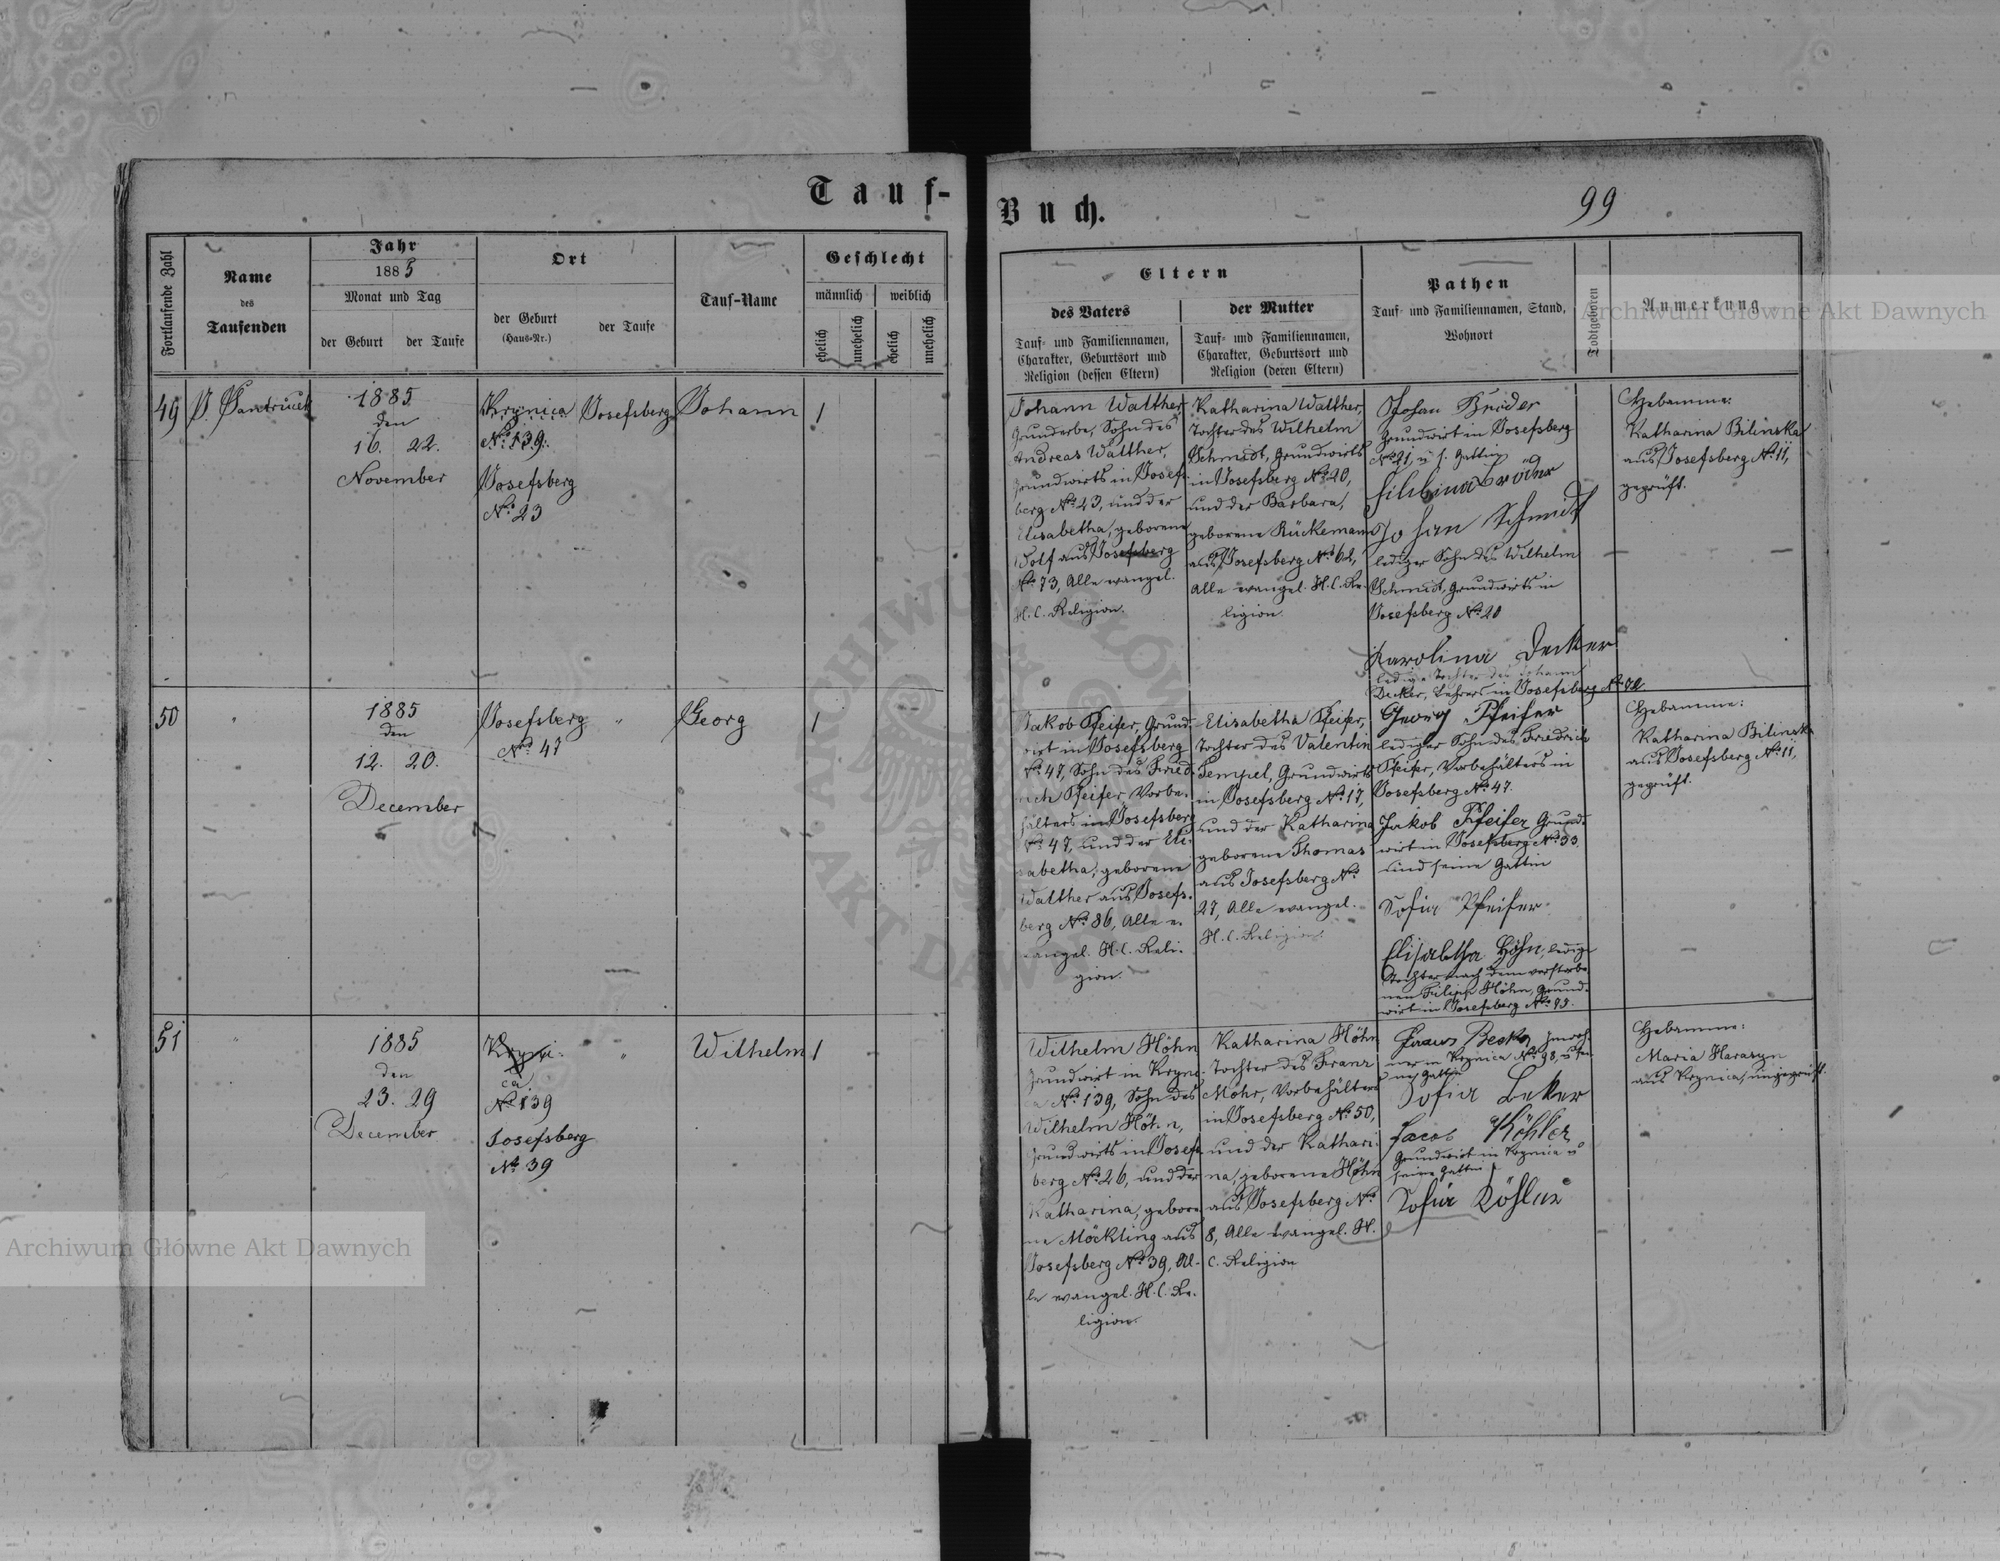 Tauf-
Buch.
99
Fortlaufende Zahl
Name
des
Taufenden
Jahr
1885
Monat und Tag
der Geburt
der Taufe
Ort
der Geburt
(Haus-Nr.)
der Taufe
Tauf-Name
Geschlecht
männlich
weiblich
ehelich
unehelich
ehelich
unehelich
Eltern
des Vaters
Tauf- und Familiennamen,
Charakter, Geburtsort und
Religion (dessen Eltern)
der Mutter
Tauf- und Familiennamen,
Charakter, Geburtsort und
Religion (deren Eltern)
Pathen
Tauf- und Familiennamen, Stand,
Wohnort
Todtgeboren
Anmerkung
49
1885
den
16. 22.
November
Krynica
No 139.
Josefsberg
No 23
Josefsberg
Johann
1
Johann Walther,
Grunderbe, Sohn des
Andreas Walther,
Grundwirts in Josefs-
berg No 23, und der
Elisabetha, geborene
Wolf aus Josefsberg
No 73, Alle evangel.
H. C. Religion.
Katharina Walther,
Tochter des Wilhelm
Schmidt, Grundwirts
in Josefsberg No 20,
und der Barbara,
geborene Rückemann
aus Josefsberg No 62,
Alle evangel. H. C. Re-
ligion.
Grundwirt in Josefsberg
No 21, u s. Gattin
Johan Schmidt
lediger Sohn des Wilhelm
Schmidt, Grundwirts in
Josefsberg No 20
Karolina Decker
ledige Tochter des Johann
Decker, Lehrers in Josefsberg No
Hebamme:
Katharina Bilinska
aus Josefsberg No 11,
geprüft.
50
"
1885
den
12. 20.
December
Josefsberg
No 47
"
Georg
1
Jakob Pfeifer, Grund-
wirt in Josefsberg
No 47, Sohn des Fried-
rich Pfeifer, Vorbe-
hälters in Josefsberg
No 47, und der Eli-
sabetha, geborene
Walther aus Josefs-
berg No 86, Alle e-
vangel. H. C. Reli-
gion.
Elisabetha Pfeifer,
Tochter des Valentin
Tempel, Grundwirts
in Josefsberg No 17,
und der Katharina
geborene Thomas
aus Josefsberg No
27, Alle evangel.
H. C. Religion.
Georg Pfeifer
lediger Sohn des Friedrich
Pfeifer, Vorbehälters in
Josefsberg No 47.
Jakob Pfeifer Grund-
wirt in Josefsberg No 33.
und seine Gattin
Sofia Pfeifer
Elisabetha Höhn, ledige
Tochter nach dem verstorbe-
nen Filipp Höhn, Grund-
wirt in Josefsberg No
Hebamme:
Katharina Bilinska
aus Josefsberg No 11,
geprüft.
51
"
1885
den
23. 29
December
Kryni-
ca
No 139
Josefsberg
No 39
"
Wilhelm
1
Wilhelm Höhn
Grundwirt in Kryni-
ca No 139, Sohn des
Wilhelm Höhn,
Grundwirts in Josefs-
berg No 26, und der
Katharina, gebore-
ne Möckling aus
Josefsberg No 39, Al-
le evangel. H. C. Re-
ligion.
Katharina Höhn
Tochter des Franz
Mohr, Vorbehälters
in Josefsberg No 50,
und der Kathari-
na, geborene Höhn
aus Josefsberg No
8, Alle evangel. H.
C. Religion
in Krynica No 98, u sei-
ne Gattin
Sofia Beker
Jacob Köhler
Grundwirt in Krynica u
seine Gattin
Sofia Köhler
Hebamme:
Maria Harasyn
aus Krynica, ungeprüft.
Archiwum Główne Akt Dawnych
Archiwum Główne Akt Dawnych
ARCHIWUM GŁÓWNE
AKT DAWNYCH